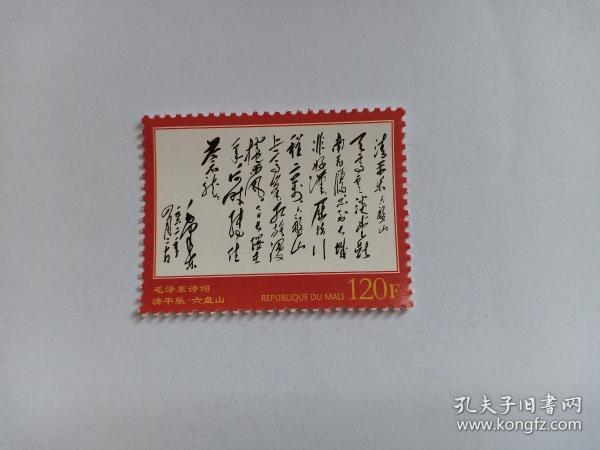 清平乐 六盤山
天高雲淡望断
南飞雁不到长城
非好漢屈指行
程二萬六盤山
上高峯红旗漫
捲西風今日長纓在
手何时缚住
蒼龙
毛泽东
毛泽东诗词
清平乐·六盘山
REPUBLIQUE DU MALI 120F
孔夫子旧书网
www.kongfz.com